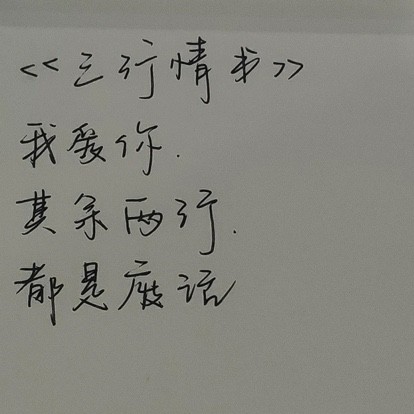 <<三行情书>>
我爱你.
其余两行.
都是废话